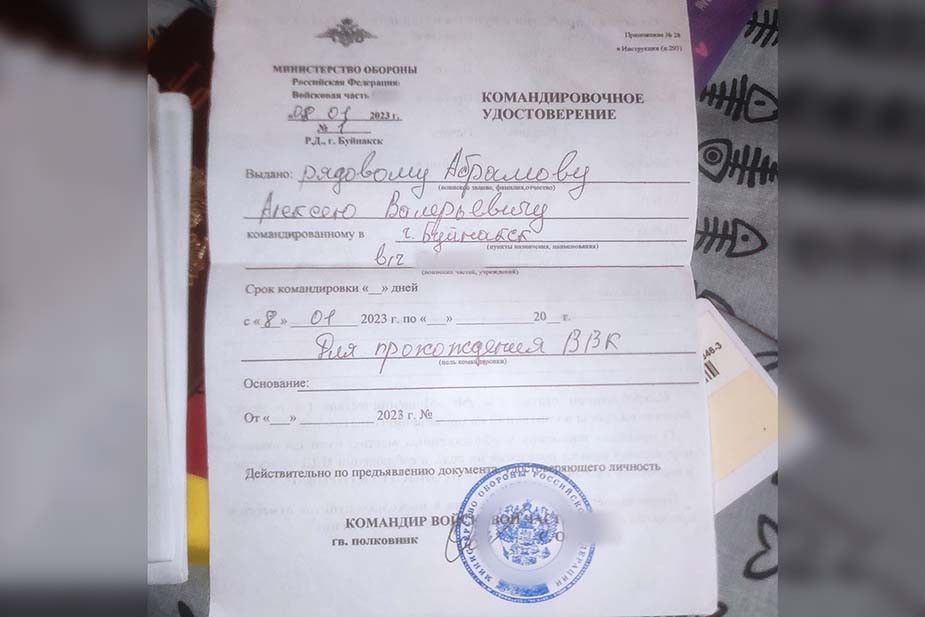 Приложение № 28
к Инструкции (п.293)
МИНИСТЕРСТВО ОБОРОНЫ
Российская Федерация
Войсковая часть
«08» 01 2023 г.
№ 1
Р.Д., г. Буйнакск
КОМАНДИРОВОЧНОЕ
УДОСТОВЕРЕНИЕ
Выдано: рядовому Абрамову
(воинское звание, фамилия,отчество)
Алексею Валерьевичу
командированному в г. Буйнакск
(пункты назначения, наименования)
в/ч
(воинских частей, учреждений)
Срок командировки «__» дней
с «8» 01 2023 г. по «___» ____________20__ г.
Для прохождения ВВК
(цель командировки)
Основание:
От «___» ____________ 2023 г. № __________________
Действительно по предъявлению документа, удостоверяющего личность
КОМАНДИР ВОЙСКОВОЙ ЧАСТ
гв. полковник
МИНИСТЕРСТВО ОБОРОНЫ РОССИЙСКОЙ ФЕДЕРАЦИИ
46-3